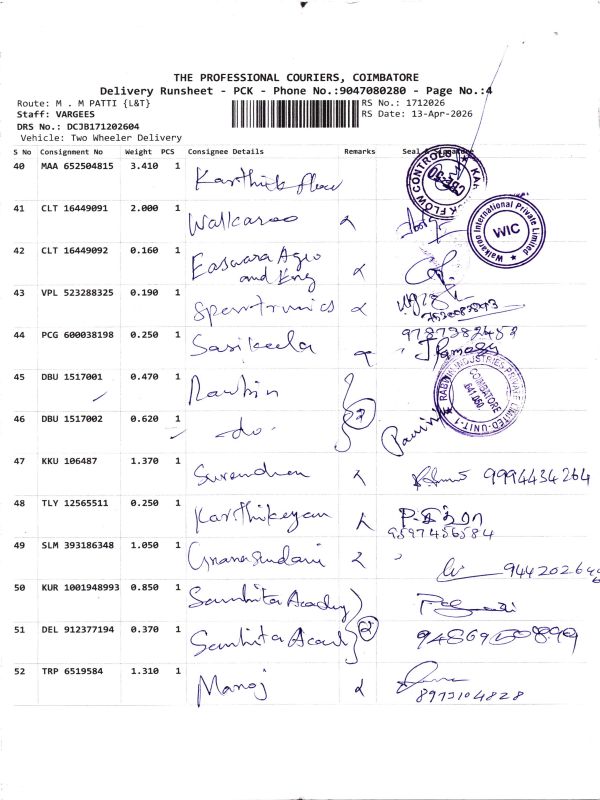 THE PROFESSIONAL COURIERS, COIMBATORE
Delivery Runsheet - PCK - Phone No.:9047080280 - Page No.:4
Route: M . M PATTI {L&T}
RS No.: 1712026
Staff: VARGEES
RS Date: 13-Apr-2026
DRS No.: DCJB171202604
Vehicle: Two Wheeler Delivery
S No Consignment No Weight PCS Consignee Details Remarks Seal &
40 MAA 652504815 3.410 1 Karthick flow
41 CLT 16449091 2.000 1 Walkaroo
Walkaroo International Private Limited
WIC
42 CLT 16449092 0.160 1 Easwara Agro
and Eng
43 VPL 523288325 0.190 1
44 PCG 600038198 0.250 1 Sasikala
9787382452
45 DBU 1517001 0.470 1
INDUSTRIES PRIVATE LIMITED-UNIT-1
COIMBATORE
46 DBU 1517002 0.620 1 do. 2
47 KKU 106487 1.370 1 Surendran 9994434264
48 TLY 12565511 0.250 1 Karthikeyan
9597456584
49 SLM 393186348 1.050 1 Gnanasundari
50 KUR 1001948993 0.850 1 Samhita Academy
51 DEL 912377194 0.370 1 Samhita Acad 2
52 TRP 6519584 1.310 1 Manoj
8973104828